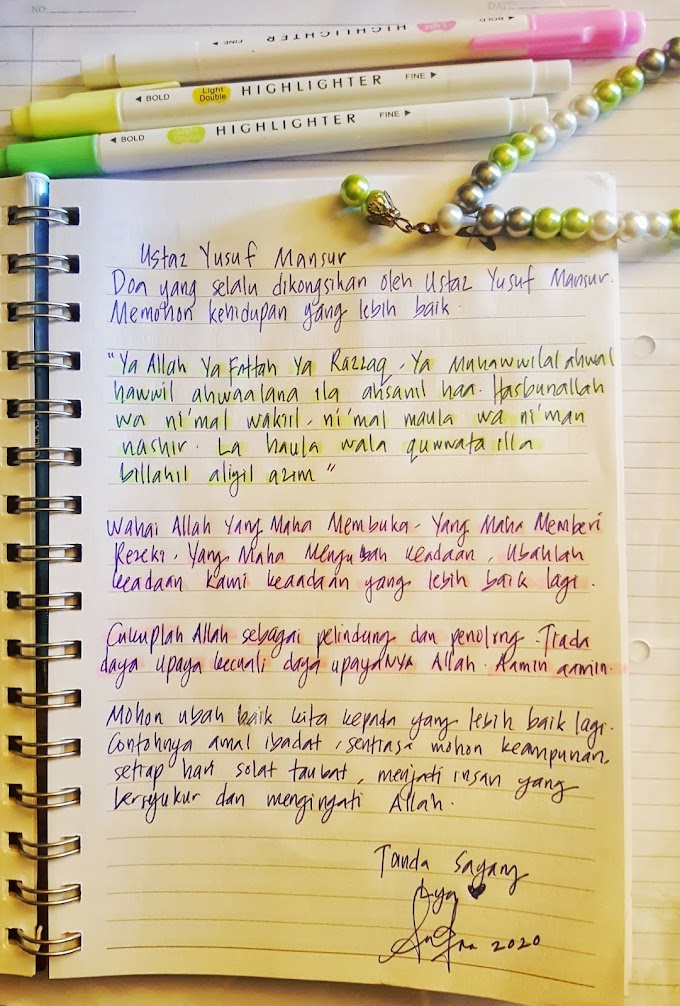 NO:
DATE:
HIGHLIGHTER
BOLD
FINE
BOLD
Light Double
HIGHLIGHTER
FINE
BOLD
HIGHLIGHTER
FINE
Ustaz Yusuf Mansur
Doa yang selalu dikongsikan oleh Ustaz Yusuf Mansur.
Memohon kehidupan yang lebih baik.
"Ya Allah Ya Fattah Ya Razzaq, Ya Muhawwilal ahwal
hawwil ahwaalana ila ahsanil haa. Hasbunallah
wa ni'mal wakiil, ni'mal maula wa ni'man
nashir. La haula wala quwwata illa
billahil aliyil azim"
Wahai Allah Yang Maha Membuka, Yang Maha Memberi
Rezeki, Yang Maha Mengubah keadaan, Ubahlah
keadaan kami keaadaan yang lebih baik lagi.
Cukuplah Allah sebagai pelindung dan penolong. Tiada
daya upaya kecuali daya upayaNYA Allah. Aamin aamin.
Mohon ubah baik kita kepada yang lebih baik lagi.
Contohnya amal ibadat, sentiasa mohon keampunan
setiap hari solat taubat, menjati insan yang
bersyukur dan mengingati Allah.
Tanda Sayang
2020